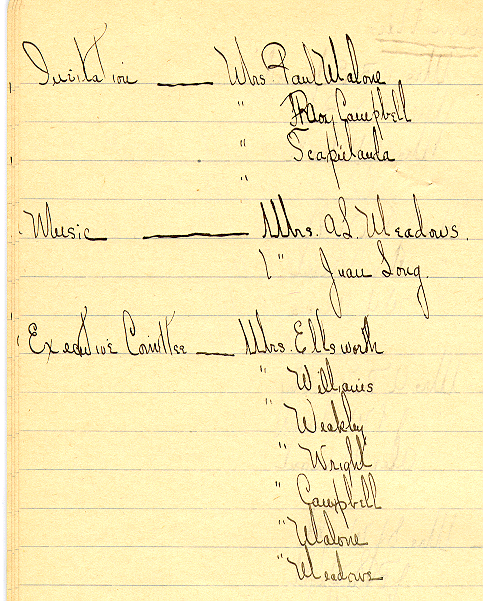 Invitation — Mrs. Paul Malone
" Roy Campbell
" Scapielaula
"
Music — Mrs. A.L. Meadows.
" Juan Long.
Executive Comittee — Mrs. Ellsworth
" Williams
" Weakley
" Wright
" Campbell
" Malone
" Meadows